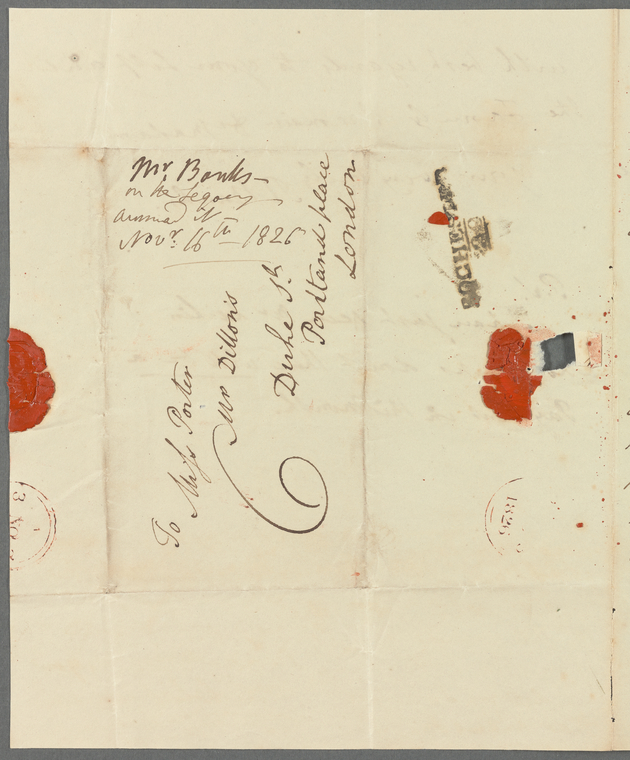 Mr. Banks
on the Legacy
answd it
Novr. 16th - 1826
To Miss Porter
Mrs Dillon's
Duke St.
Portland place
London
6
ROCHESTER
1826